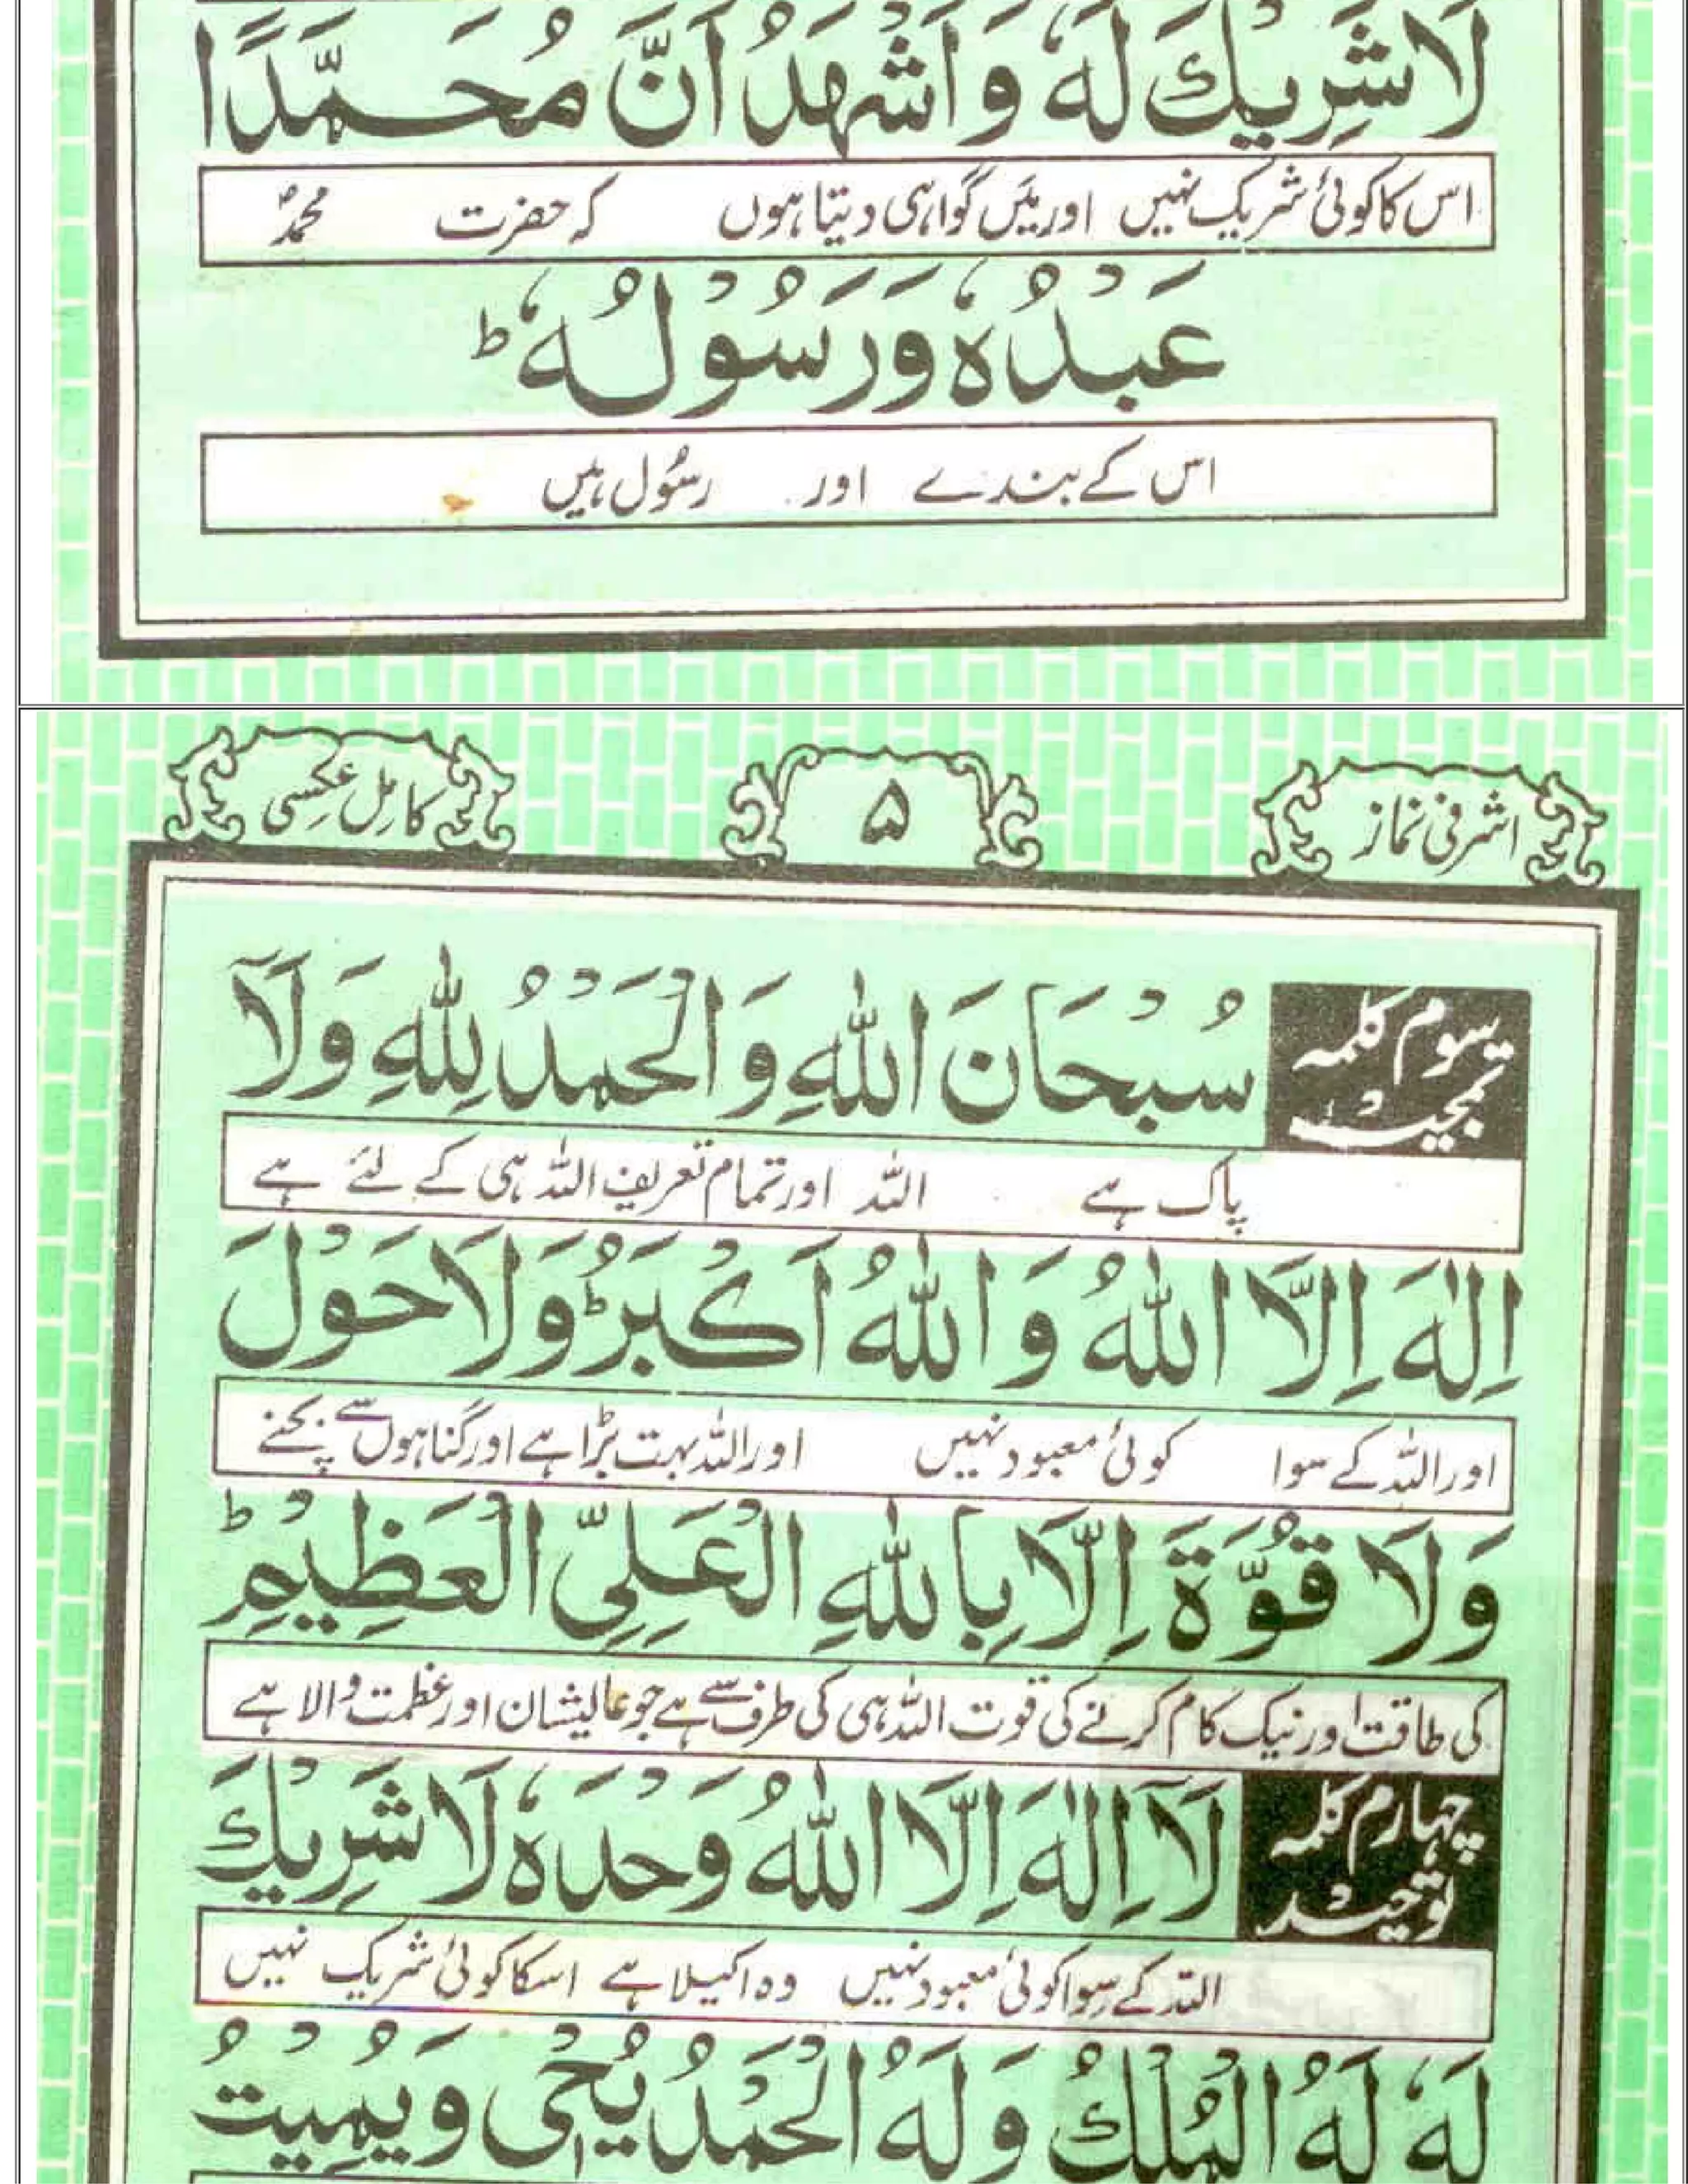 لَا شَرِيْكَ لَهٗ وَاَشْهَدُ اَنَّ مُحَمَّدًا
اس کا کوئی شریک نہیں اور میں گواہی دیتا ہوں کہ حضرت محمدؐ
عَبْدُهٗ وَرَسُوْلُهٗ ط
اس کے بندے اور رسُول ہیں
اشرفی نماز ۵ کامل عکسی
سوم کلمہ تمجید
سُبْحَانَ اللهِ وَالْحَمْدُ لِلّٰهِ وَلَآ
پاک ہے اللہ اور تمام تعریف اللہ ہی کے لئے ہے
اِلٰهَ اِلَّا اللهُ وَاللهُ اَكْبَرُ ط وَلَا حَوْلَ
اور اللہ کے سوا کوئی معبود نہیں اور اللہ بہت بڑا ہے اور گناہوں سے بچنے
وَلَا قُوَّةَ اِلَّا بِاللهِ الْعَلِيِّ الْعَظِيْمِ ط
کی طاقت اور نیک کام کرنے کی قوت اللہ ہی کی طرف سے ہے جو عالیشان اور عظمت والا ہے
چہارم کلمہ توحید
لَآ اِلٰهَ اِلَّا اللهُ وَحْدَهٗ لَا شَرِيْكَ
اللہ کے سوا کوئی معبود نہیں وہ اکیلا ہے اسکا کوئی شریک نہیں
لَهٗ لَهُ الْمُلْكُ وَلَهُ الْحَمْدُ يُحْيٖ وَيُمِيْتُ